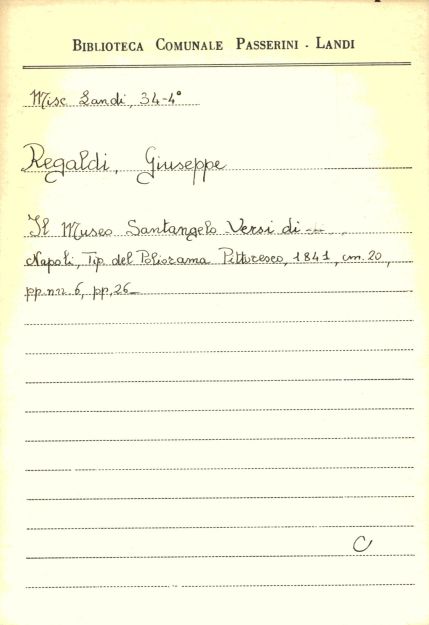 BIBLIOTECA COMUNALE PASSERINI - LANDI
Misc. Landi, 34-4°
Regaldi, Giuseppe
Il Museo Santangelo Versi di ---.
Napoli, Tip. del Poliorama Pittoresco, 1841, cm. 20,
pp.nn. 6, pp. 26_
C